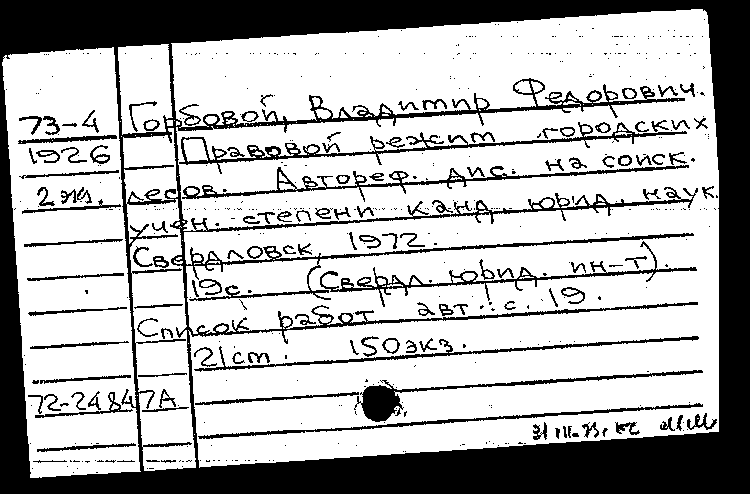 73-4 Горбовой, Владимир Федорович.
1926 Правовой режим городских
2 экз. лесов. Автореф. дис. на соиск.
учен. степени канд. юрид. наук.
Свердловск, 1972.
19с. (Свердл. юрид. ин-т).
Список работ авт.: с. 19.
21см. 150экз.
72-24847А